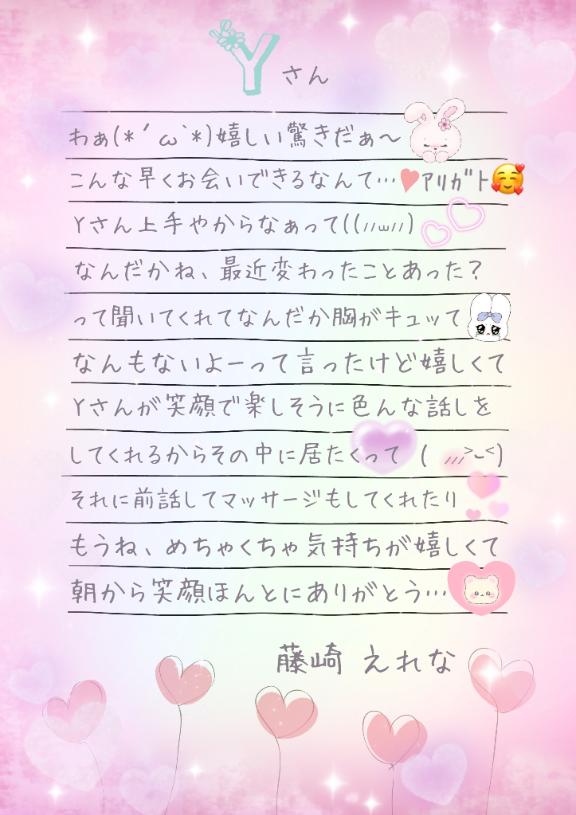 Yさん
わぁ(*´ω`*)嬉しい驚きだぁ〜
こんな早くお会いできるなんて…♥ｱﾘｶﾞﾄ🥰
Yさん上手やからなぁって((//ω//)
なんだかね、最近変わったことあった?
って聞いてくれてなんだか胸がキュッて
なんもないよーって言ったけど嬉しくて
Yさんが笑顔で楽しそうに色んな話しを
してくれるからその中に居たくって ( ,,,>⌣<)
それに前話してマッサージもしてくれたり
もうね、めちゃくちゃ気持ちが嬉しくて
朝から笑顔ほんとにありがとう…
藤崎 えれな